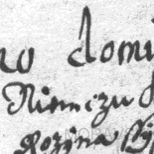 no domi
Niemczu
Rozyna